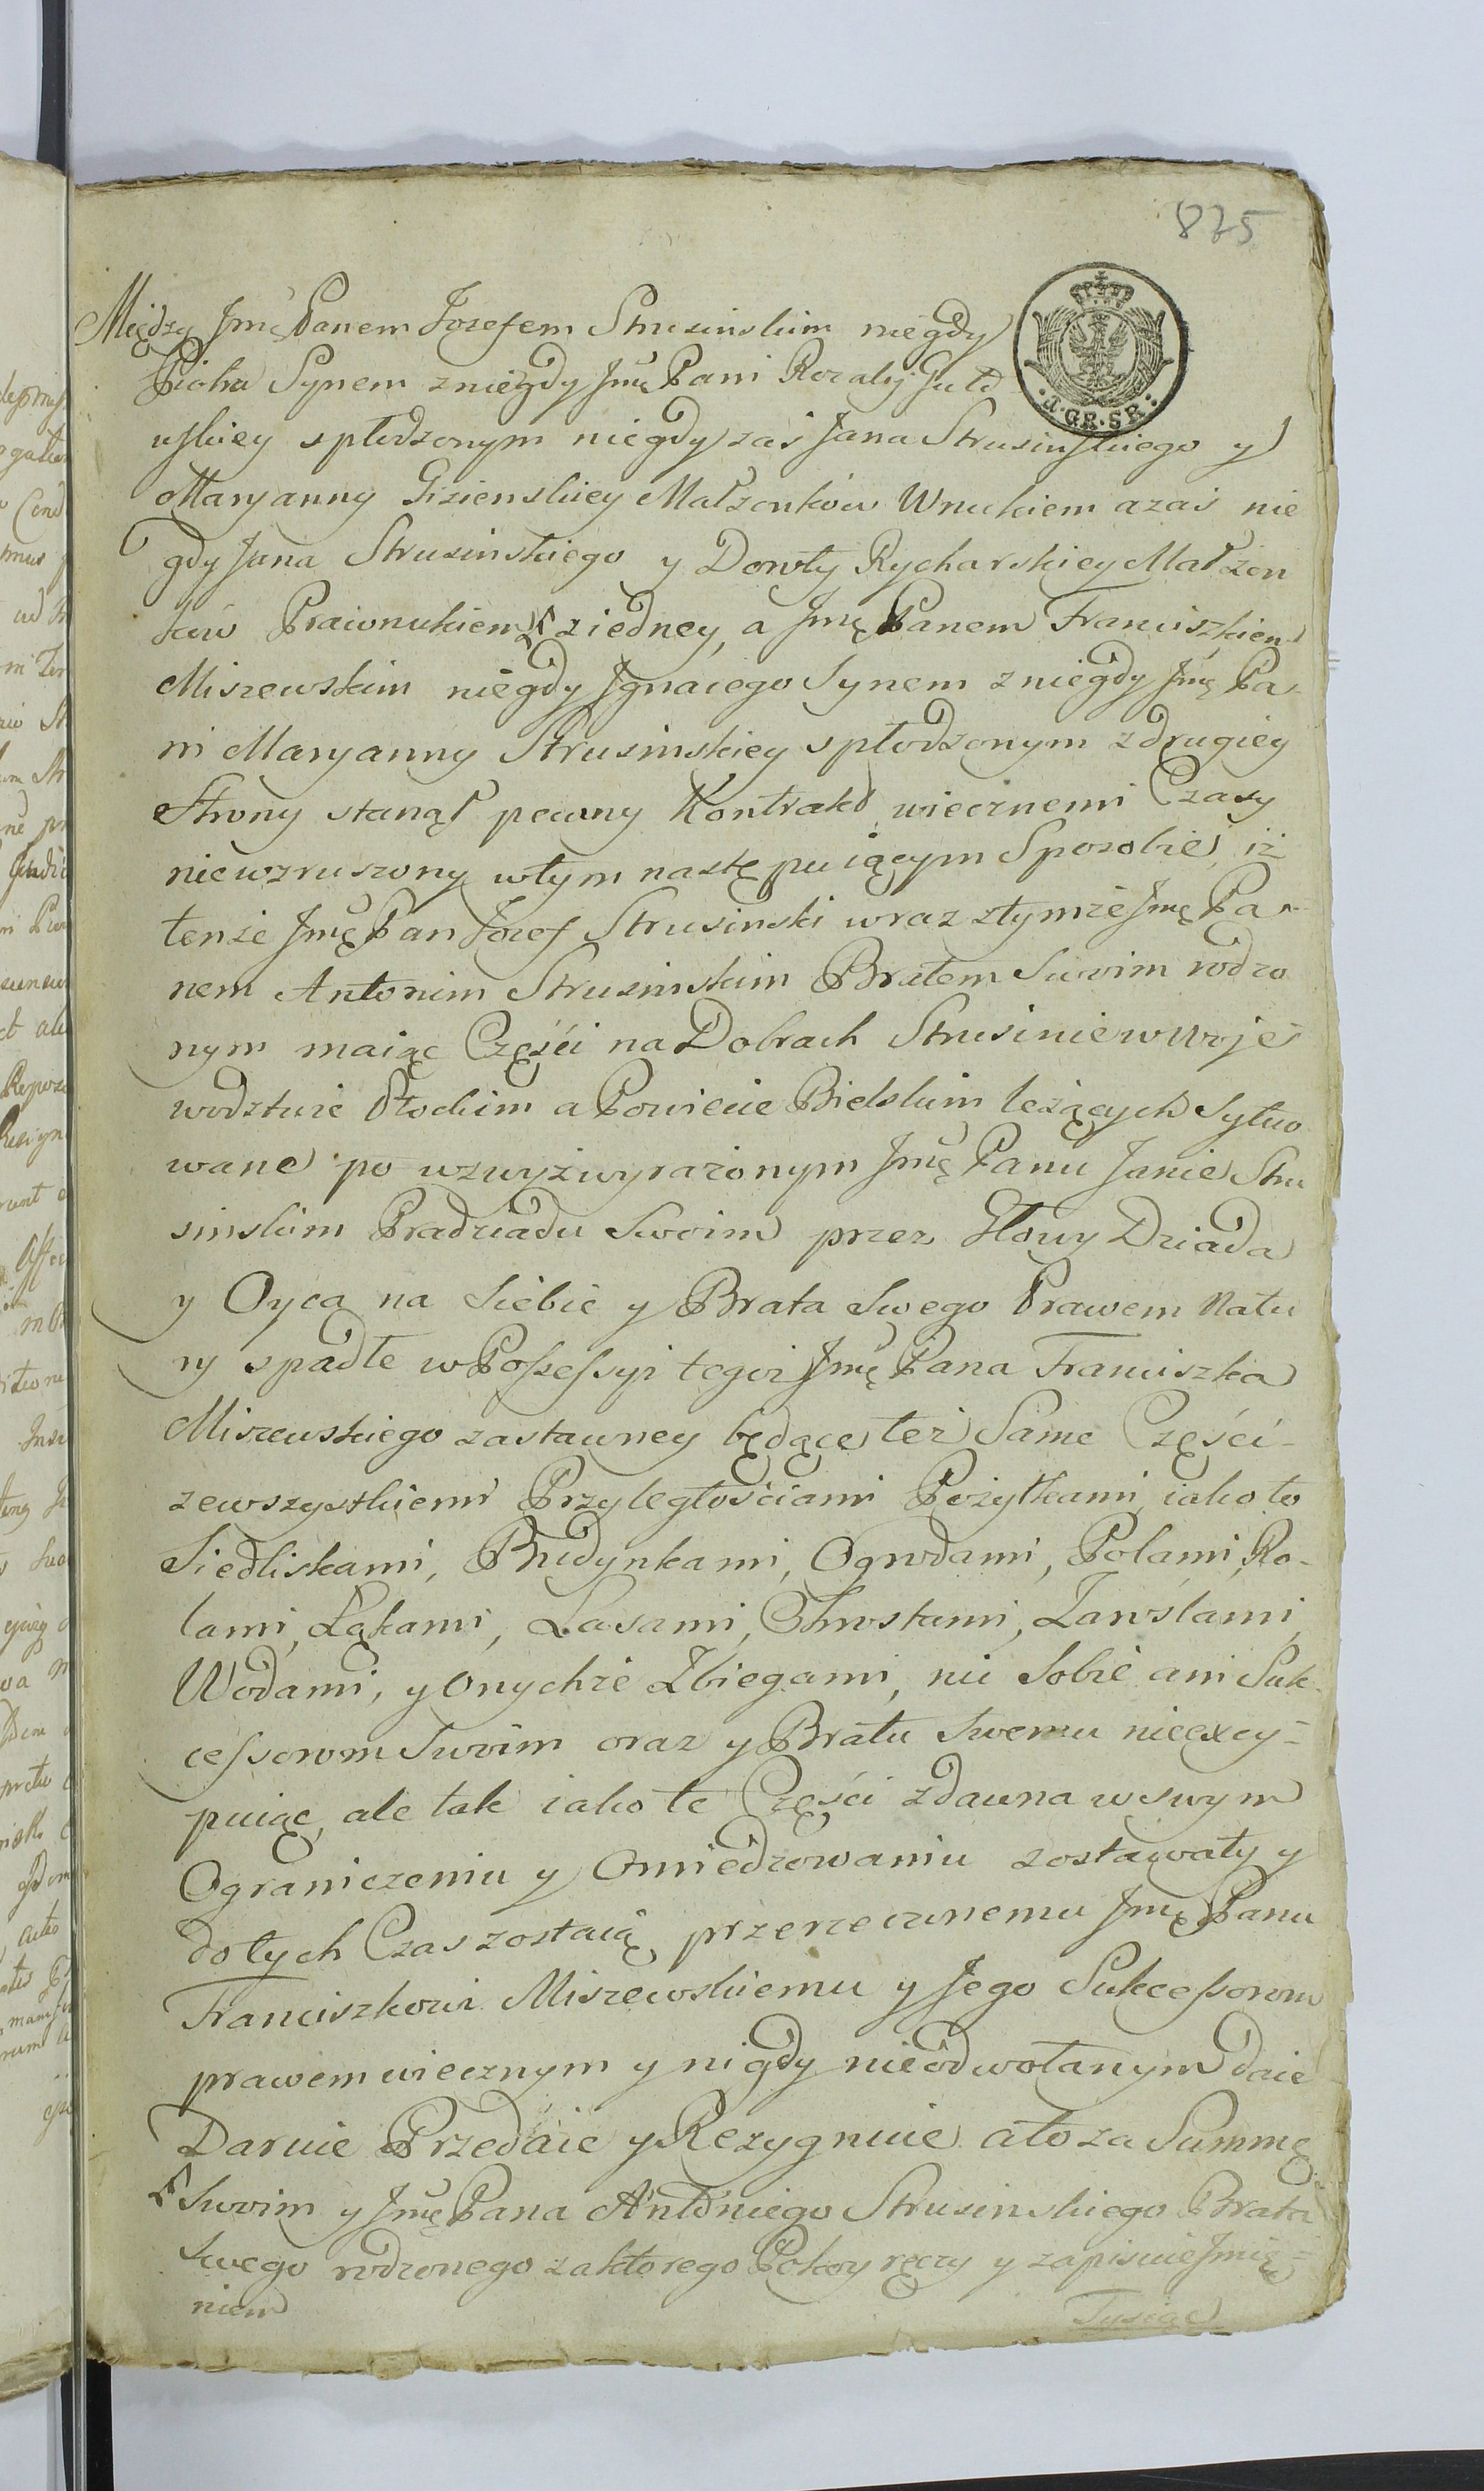 825
4. GR. SR.
Między Jmę Panem Jozefem Strusinskim niegdy
Piotra Synem z niegdy Jmę Pani Rozalij
uskiey spłodzonym niegdy zas Jana Strusinskiego y
Maryanny Gizienskiey Małzonkow Wnukiem a zas nie
gdy Jana Strusinskiego y Doroty Rycharskiey Małzon
kow Prawnukiem z iedney, a Jmę Panem Franciszkiem
Miszewskim niegdy Jgnacego Synem z niegdy Jmę Pa-
ni Maryanny Strusinskiey spłodzonym z drugiey
Strony stanął pewny Kontrakt wiecznemi Czasy
niewzruszony w tym nastę puiącym Sposobie, iż
tenże Jmę Pan Jozef Strusinski wraz z tymże Jmę Pa-
nem Antonim Strusinskim Bratem Swoim rodzo
nym maiąc Części na Dobrach Strusinie w Woje
wodztwie Płockim a Powiecie Bielskim leżących Sytuo
wane po wzwyż wyrażonym Jmę Panu Janie Stru
sinskim Pradziadu Swoim przez Głowy Dziada
y Oyca na Siebie y Brata Swego Prawem Natu
ry spadłe w Possessyi tegoż Jmę Pana Franciszka
Miszewskiego zastawney będące też Same Części
zewszystkiemi Przyległościami Pożytkami iako to
Siedliskami, Budynkami, Ogrodami, Polami, Ro-
lami, Łąkami, Lasami, Chrostami, Zaroslami,
Wodami, y Onychże Zbiegami, nic Sobie ani Suk-
cessorom Swoim oraz y Bratu Swemu nieexcy-
puiąc, ale tak iako te Części zdawna w swym
Ograniczeniu y Omiedzowaniu zostawały y
do tych Czas zostaią przerzeczonemu Jmę Panu
Franciszkowi Miszewskiemu y Jego Sukcessorom
prawem wiecznym y nigdy nieodwołanym daie
Daruie Przedaie y Rezygnuie a to za Summę
Swoim y Jmę Pana Antoniego Strusinskiego Brata
Swego rodzonego za ktorego Pokoy ręczy y zapisuie Jmię-
niem
Tysiąc